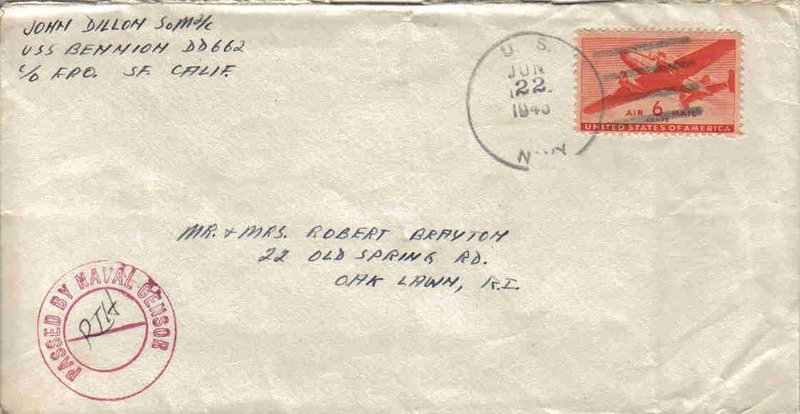 JOHN DILLON SoM2/c
USS BENNION DD662
c/o F.P.O. SF. CALIF.
U. S.
JUN
22
1945
NAVY
AIR 6¢ MAIL
UNITED STATES OF AMERICA
MR. & MRS. ROBERT BRAYTON
22 OLD SPRING RD.
OAK LAWN, R.I.
PASSED BY NAVAL CENSOR